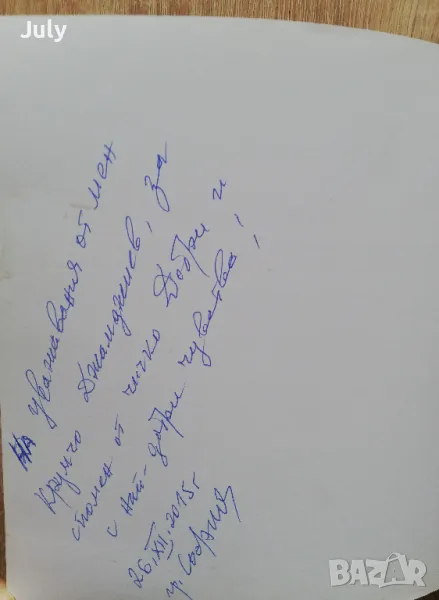 July
на уважавания от мен
Крумчо Джамджиев, за
спомен от чичко Добри и
с най-добри чувства!
26.XII.2015 г
гр. София
BAZAR